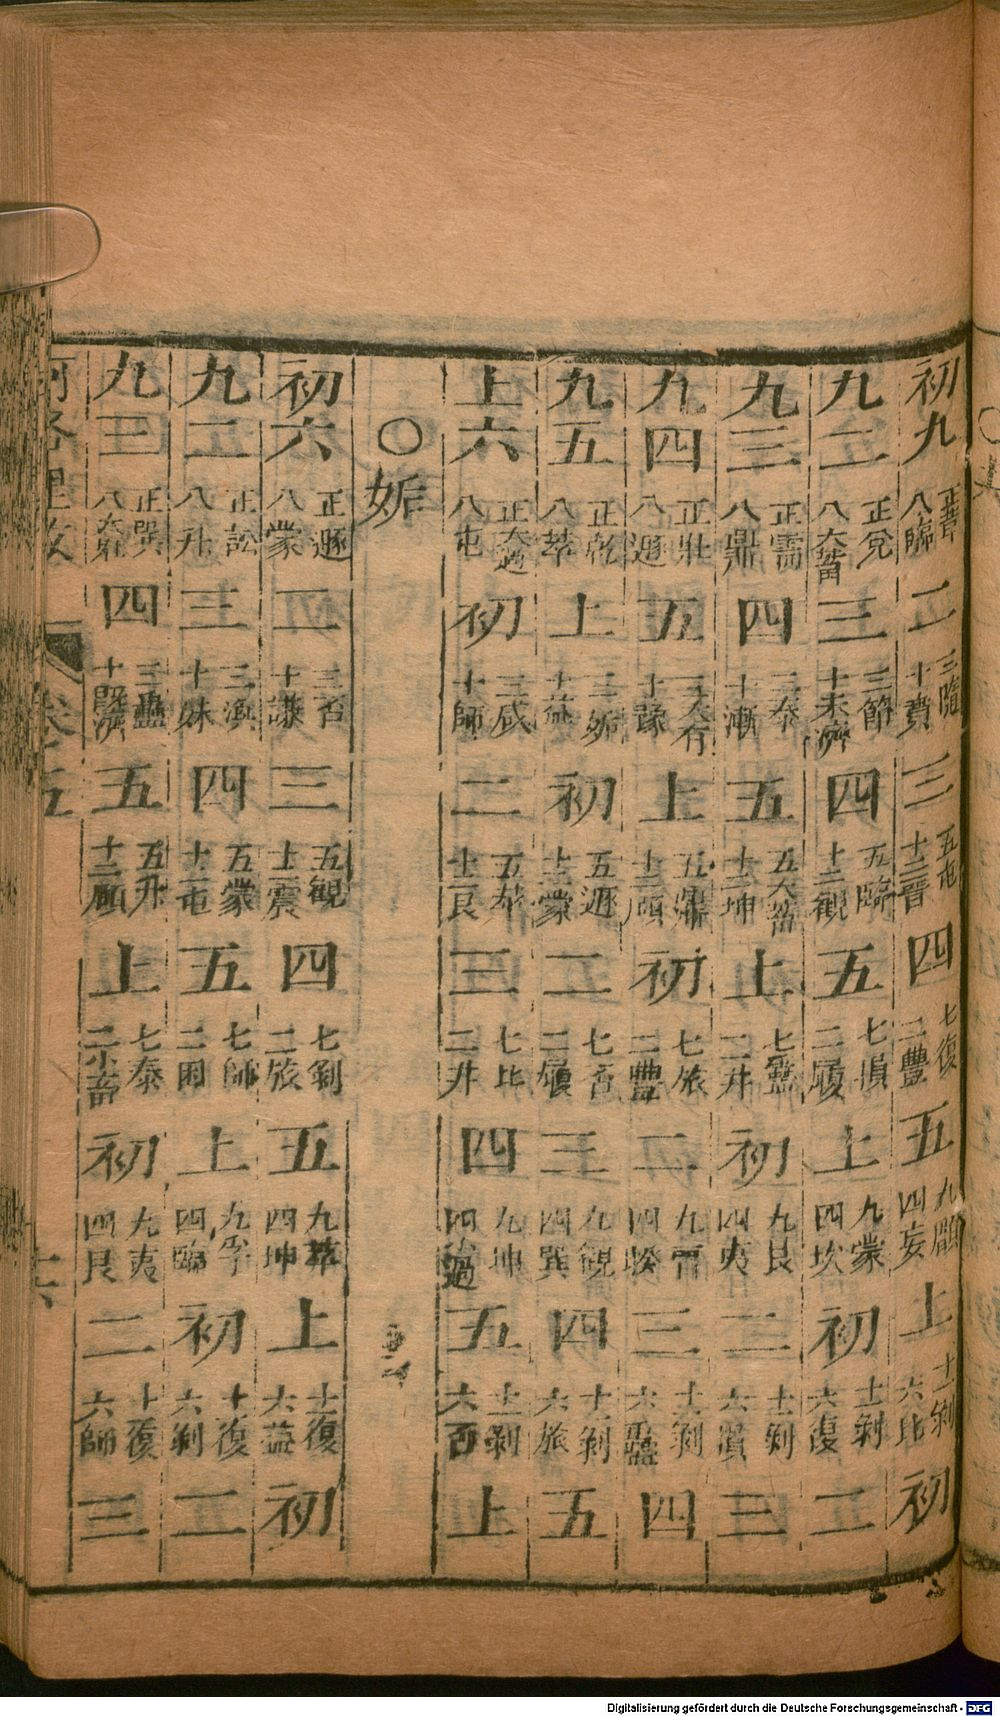 初九正八臨二三隨十賁三五屯十二晉四七復二豐五九頤四妄上十一剝六比初
九二正兌八大畜三三節十未濟四五臨十二觀五七損二履上九蒙四坎初十一剝六復二
九三正需八鼎四三泰十漸五五大畜十二坤上七蠱二井初九艮四夷二十一剝六渙三
九四正壯八遯五三大有十豫上五鼎十二頤初七旅二豐二九晉四睽三十一剝六蠱四
九五正乾八萃上三姤十益初五遯十二蒙二七否二履三九觀四巽四十一剝六旅五
上六正大過八屯初三咸十師二五萃十二艮三七比二井四九坤四過五十一剝六否上
○姤
初六正遯八蒙二三否十謙三五觀十二震四七剝二旅五九萃四坤上十一復六益初
九二正訟八升三三渙十妹四五蒙十二屯五七師二困上九孚四臨初十一復六剝二
九三正巽八大壯四三蠱十既濟五五升十二頤上七泰二小畜初九夷四艮二十一復六師三
河洛理數 卷之五 十六
Digitalisierung gefördert durch die Deutsche Forschungsgemeinschaft - DFG